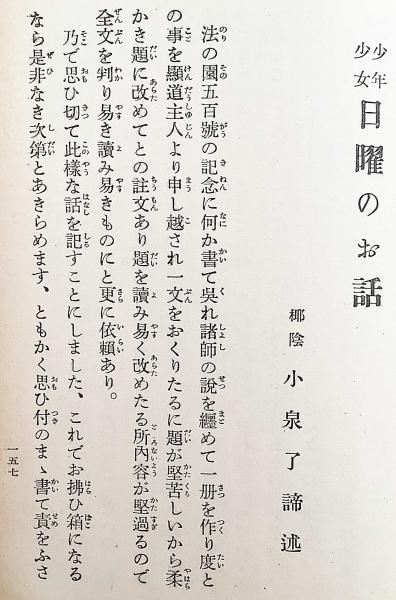 少年少女 日曜のお話
椰陰 小泉了諦述
法の園五百號の記念に何か書て呉れ諸師の說を纒めて一册を作り度と
の事を顯道主人より申し越され一文をおくりたるに題が堅苦しいから柔
かき題に改めてとの註文あり題を讀み易く改めたる所內容が堅過るので
全文を判り易き讀み易きものにと更に依賴あり。
乃で思ひ切て此樣な話を記すことにしました、これでお拂ひ箱になる
なら是非なき次第とあきらめます、ともかく思ひ付のまゝ書て責をふさ
一五七